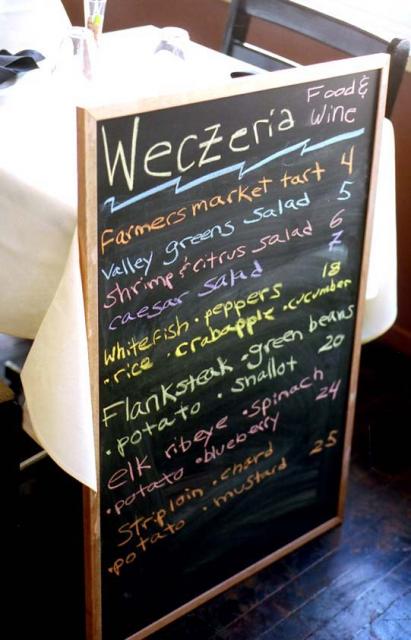 Weczeria Food &
Wine
Farmers market tart 4
Valley greens salad 5
Shrimp & citrus salad 6
caesar salad 7
Whitefish · peppers 18
· rice · crabapple · cucumber
Flanksteak · green beans
· potato · shallot 20
elk ribeye · spinach
· potato · blueberry 24
Striploin · chard
· potato · mustard 25